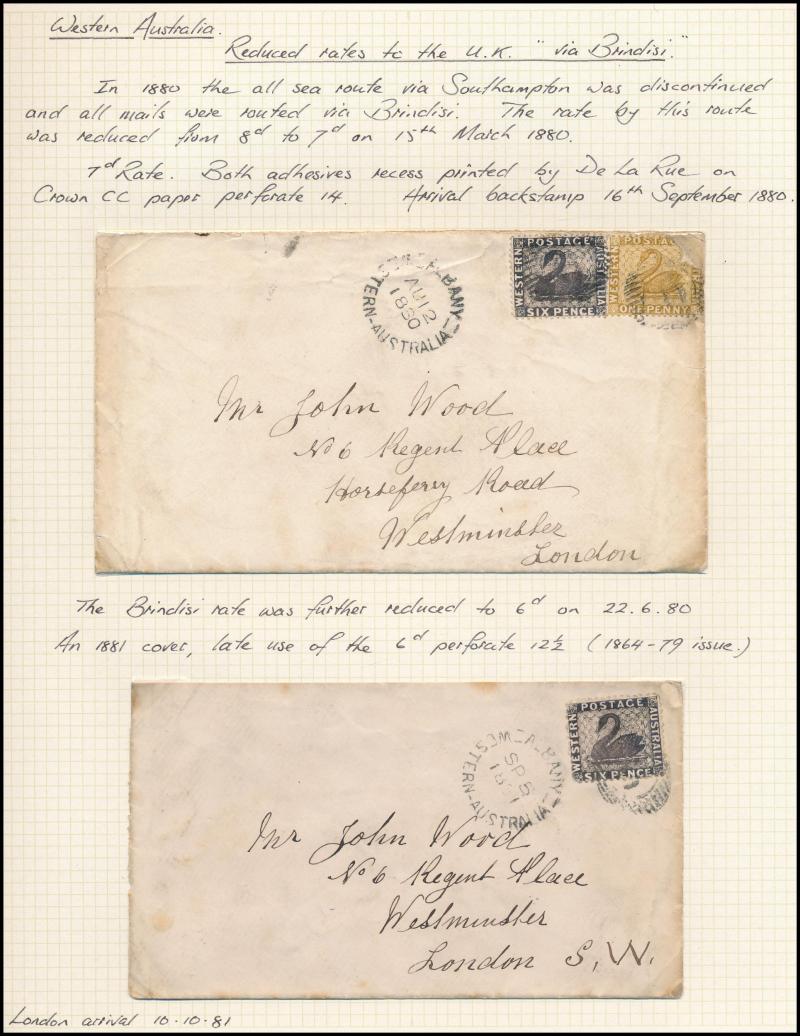 Western Australia.
Reduced rates to the U.K. "via Brindisi."
In 1880 the all sea route via Southampton was discontinued
and all mails were routed via Brindisi. The rate by this route
was reduced from 8d to 7d on 15th March 1880.
7d Rate. Both adhesives recess printed by De La Rue on
Crown CC paper perforate 14. Arrival backstamp 16th September 1880.
ALBANY
AU 12
1880
WESTERN-AUSTRALIA
POSTAGE
WESTERN
AUSTRALIA
SIX PENCE
POSTA
WESTERN
ONE PENNY
Mr John Wood
No 6 Regent Place
Horseferry Road
Westminster
London
The Brindisi rate was further reduced to 6d on 22.6.80
An 1881 cover, late use of the 6d perforate 12½ (1864-79 issue.)
ALBANY
SP 5
WESTERN-AUSTRALIA
POSTAGE
WESTERN
AUSTRALIA
SIX PENCE
Mr John Wood
No 6 Regent Place
Westminster
London S.W.
London arrival 10.10.81